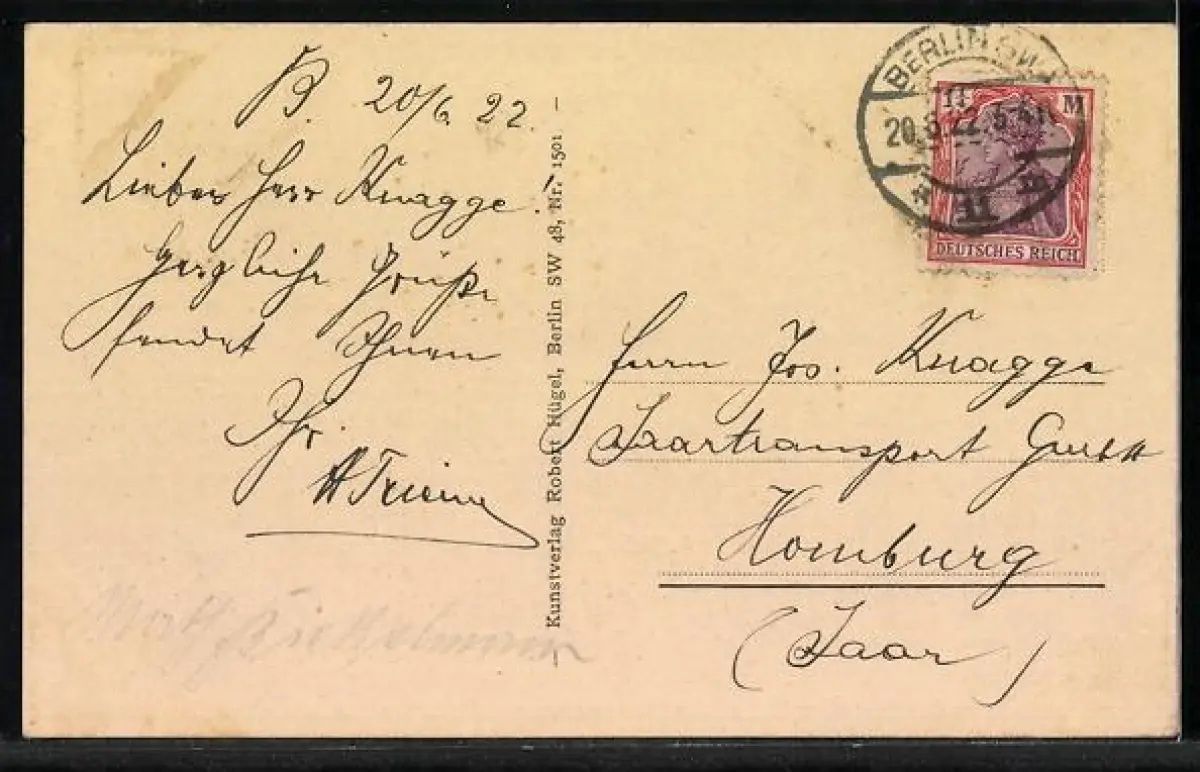 B. 20/6. 22.
Lieber Herr Knagge!
Herzliche Grüße
sendet Ihnen
Ihr
Kunstverlag Robert Hügel, Berlin SW 48, Nr. 1501
BERLIN SW
20.6.22.
11
M
DEUTSCHES REICH
Herrn Jos. Knagge
Saartransport GmbH
Homburg
(Saar)